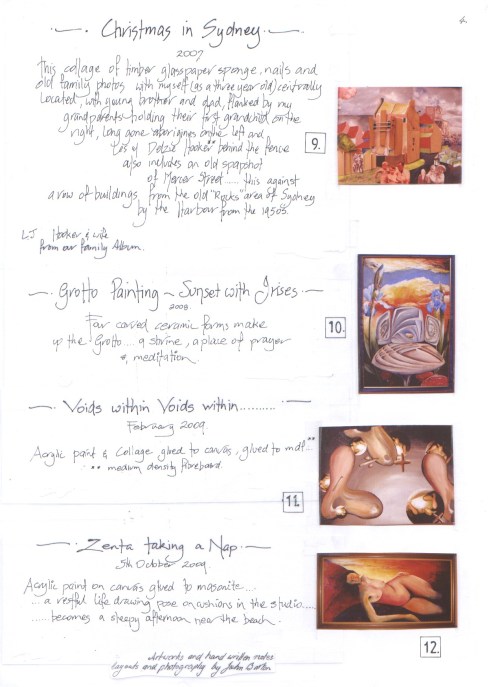 Christmas in Sydney
2007
this collage of timber glasspaper sponge, nails and
old family photos with myself (as a three year old) centrally
Located, with young brother and dad, flanked by my
grandparents holding their first grandchild on the
right, long gone aborigines on the left and
Les & Delzie Hooker** behind the fence
also includes an old snapshot
of Mercer Street...... this against
a row of buildings from the old "Rocks" area of Sydney
by the Harbour from the 1950s.
9.
LJ Hooker & wife
from our Family Album.
Grotto Painting ~ Sunset with Irises
2008.
Four carved ceramic forms make
up the Grotto.... a shrine, a place of prayer
& meditation.
10.
Voids within Voids within..........
February 2009.
Acrylic paint & Collage glued to canvas, glued to mdf**
** medium density fibreboard.
11.
Zenta taking a Nap
5th October 2009.
Acrylic paint on canvas glued to masonite....
... a restful life drawing pose on cushions in the studio.....
...... becomes a sleepy afternoon near the beach.
12.
Artworks and hand written notes
layouts and photography by John